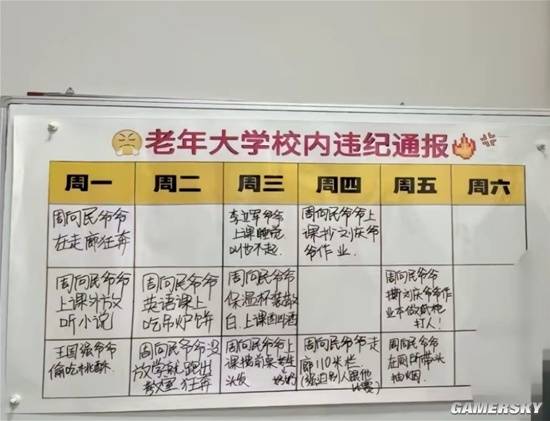 老年大学校内违纪通报
周一 周二 周三 周四 周五 周六
周向民爷爷
在走廊狂奔
军爷爷
上课睡觉
叫也不起
周向民爷爷上
课抄刘庆爷
爷作业
周向民爷爷
上课外放
听小说
周向民爷爷
英语课上
吃炉饼
周向民爷爷
保温杯装散
白上课喝酒
周向民爷爷
撕刘庆爷爷作
业本做纸枪
打人!
王国强爷爷
偷吃桃酥
周向民爷爷没
放学就跑出
教室狂奔
周向民爷爷上
课揪前桌
头发 奶奶
周向民爷爷走
廊110米栏
(强迫别人跟他
比赛)
周向民爷爷
在厕所带头
抽烟
GAMERSKY